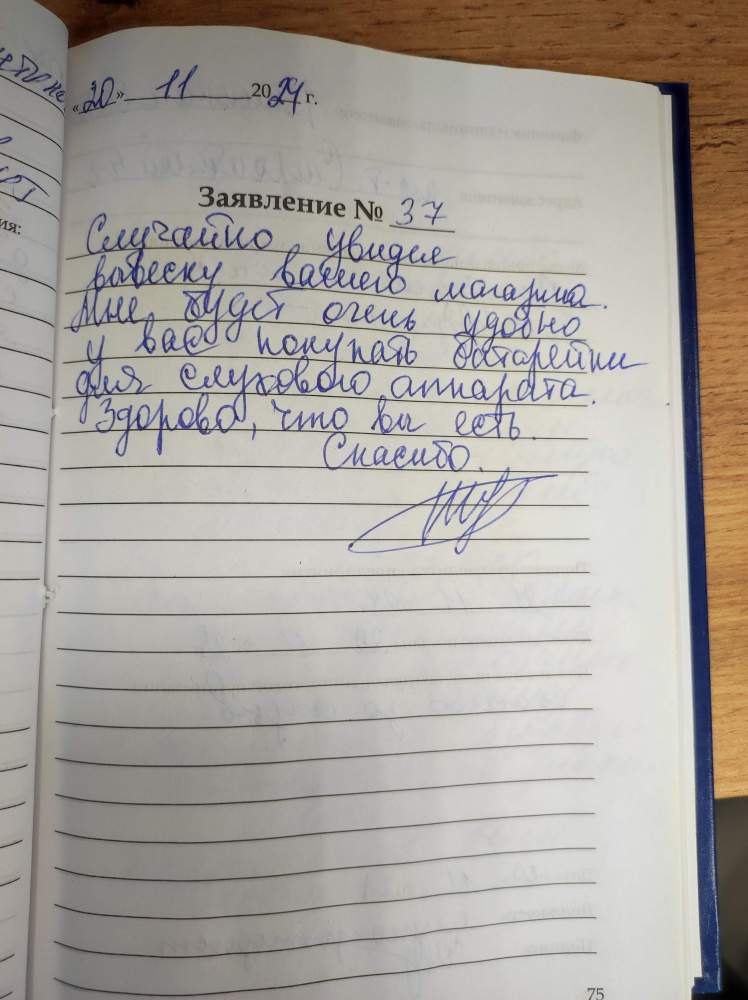 «20» 11 2024 г.
Заявление № 37
Случайно увидел
вывеску вашего магазина.
Мне будет очень удобно
у вас покупать батарейки
для слухового аппарата.
Здорово, что вы есть.
Спасибо.
ия:
75